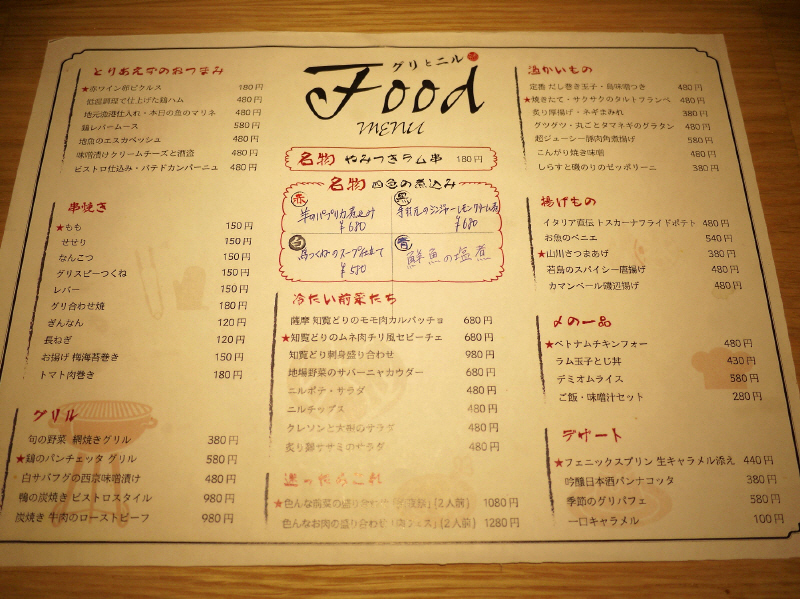 とりあえずのおつまみ
★赤ワイン卵ピクルス 180円
低温調理で仕上げた鶏ハム 480円
地元漁港仕入れ・本日の魚のマリネ 480円
鶏レバームース 580円
地魚のエスカベッシュ 480円
味噌漬けクリームチーズと酒盗 480円
ビストロ仕込み・パテドカンパーニュ 480円
串焼き
★もも 150円
せせり 150円
なんこつ 150円
グリスピーつくね 150円
レバー 150円
グリ合わせ焼 180円
ぎんなん 120円
長ねぎ 120円
お揚げ 梅海苔巻き 150円
トマト肉巻き 180円
グリル
旬の野菜 網焼きグリル 380円
★鶏のパンチェッタ グリル 580円
白サバフグの西京味噌漬け 480円
鴨の炭焼き ビストロスタイル 980円
炭焼き 牛肉のローストビーフ 980円
グリとニル
Food
MENU
名物 やみつきラム串 180円
名物 四色の煮込み
赤
羊のパプリカ煮込み
¥680
黒
¥680
白
鳥つくねのスープ仕立て
¥580
青
鮮魚の塩煮
冷たい前菜たち
薩摩 知覧どりのモモ肉カルパッチョ 680円
★知覧どりのムネ肉チリ風セビーチェ 680円
知覧どり刺身盛り合わせ 980円
地場野菜のサバーニャカウダー 680円
ニルポテ・サラダ 480円
ニルチップス 480円
クレソンと大根のサラダ 480円
炙り鶏ササミのサラダ 480円
迷ったらこれ
★色んな前菜の盛り合わせ (2人前) 1080円
色んなお肉の盛り合わせ「肉フェス」(2人前) 1280円
温かいもの
定番 だし巻き玉子・鳥味噌つき 480円
★焼きたて・サクサクのタルトフランベ 480円
炙り厚揚げ・ネギまみれ 380円
グツグツ・丸ごとタマネギのグラタン 480円
超ジューシー豚肉角煮揚げ 580円
こんがり焼き味噌 480円
しらすと磯のりのゼッポリーニ 380円
揚げもの
イタリア直伝 トスカーナフライドポテト 480円
お魚のベニエ 540円
★山川さつまあげ 380円
若鳥のスパイシー唐揚げ 480円
カマンベール磯辺揚げ 480円
〆の一品
★ベトナムチキンフォー 480円
ラム玉子とじ丼 430円
デミオムライス 580円
ご飯・味噌汁セット 280円
デザート
★フェニックスプリン 生キャラメル添え 440円
吟醸日本酒パンナコッタ 380円
季節のグリパフェ 580円
一口キャラメル 100円